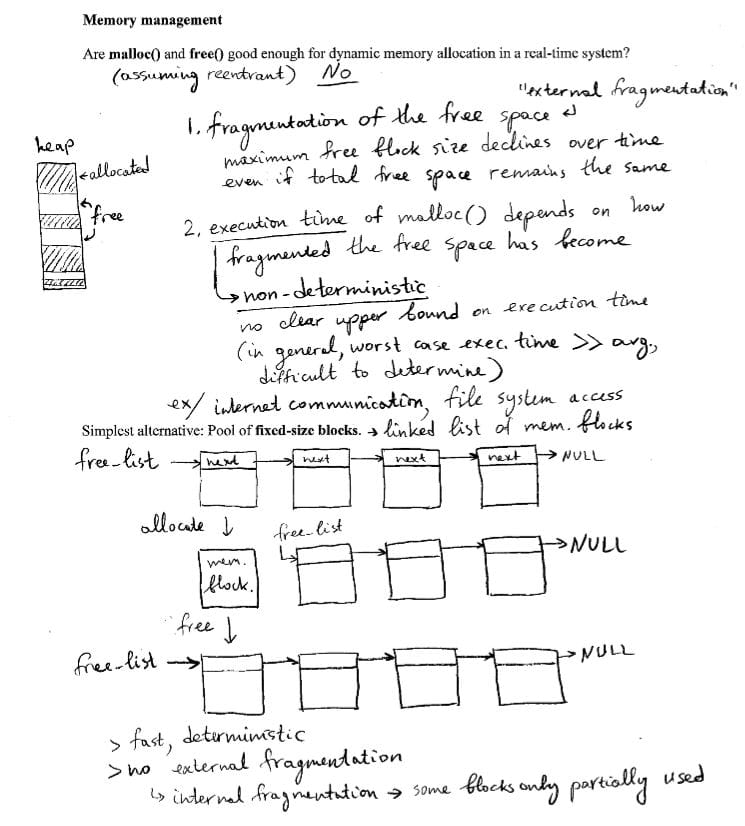 Memory management
Are malloc() and free() good enough for dynamic memory allocation in a real-time system?
(assuming reentrant) No
"external fragmentation"
1. fragmentation of the free space
maximum free block size declines over time
even if total free space remains the same
heap
allocated
free
2. execution time of malloc() depends on how
fragmented the free space has become
→ non-deterministic
no clear upper bound on execution time
(in general, worst case exec. time >> avg.,
difficult to determine)
ex/ internet communication, file system access
Simplest alternative: Pool of fixed-size blocks. → linked list of mem. blocks
free-list → next next next next → NULL
allocate ↓ free-list
mem. → NULL
block.
free ↓
free-list → → NULL
> fast, deterministic
> no external fragmentation
↳ internal fragmentation → some blocks only partially used